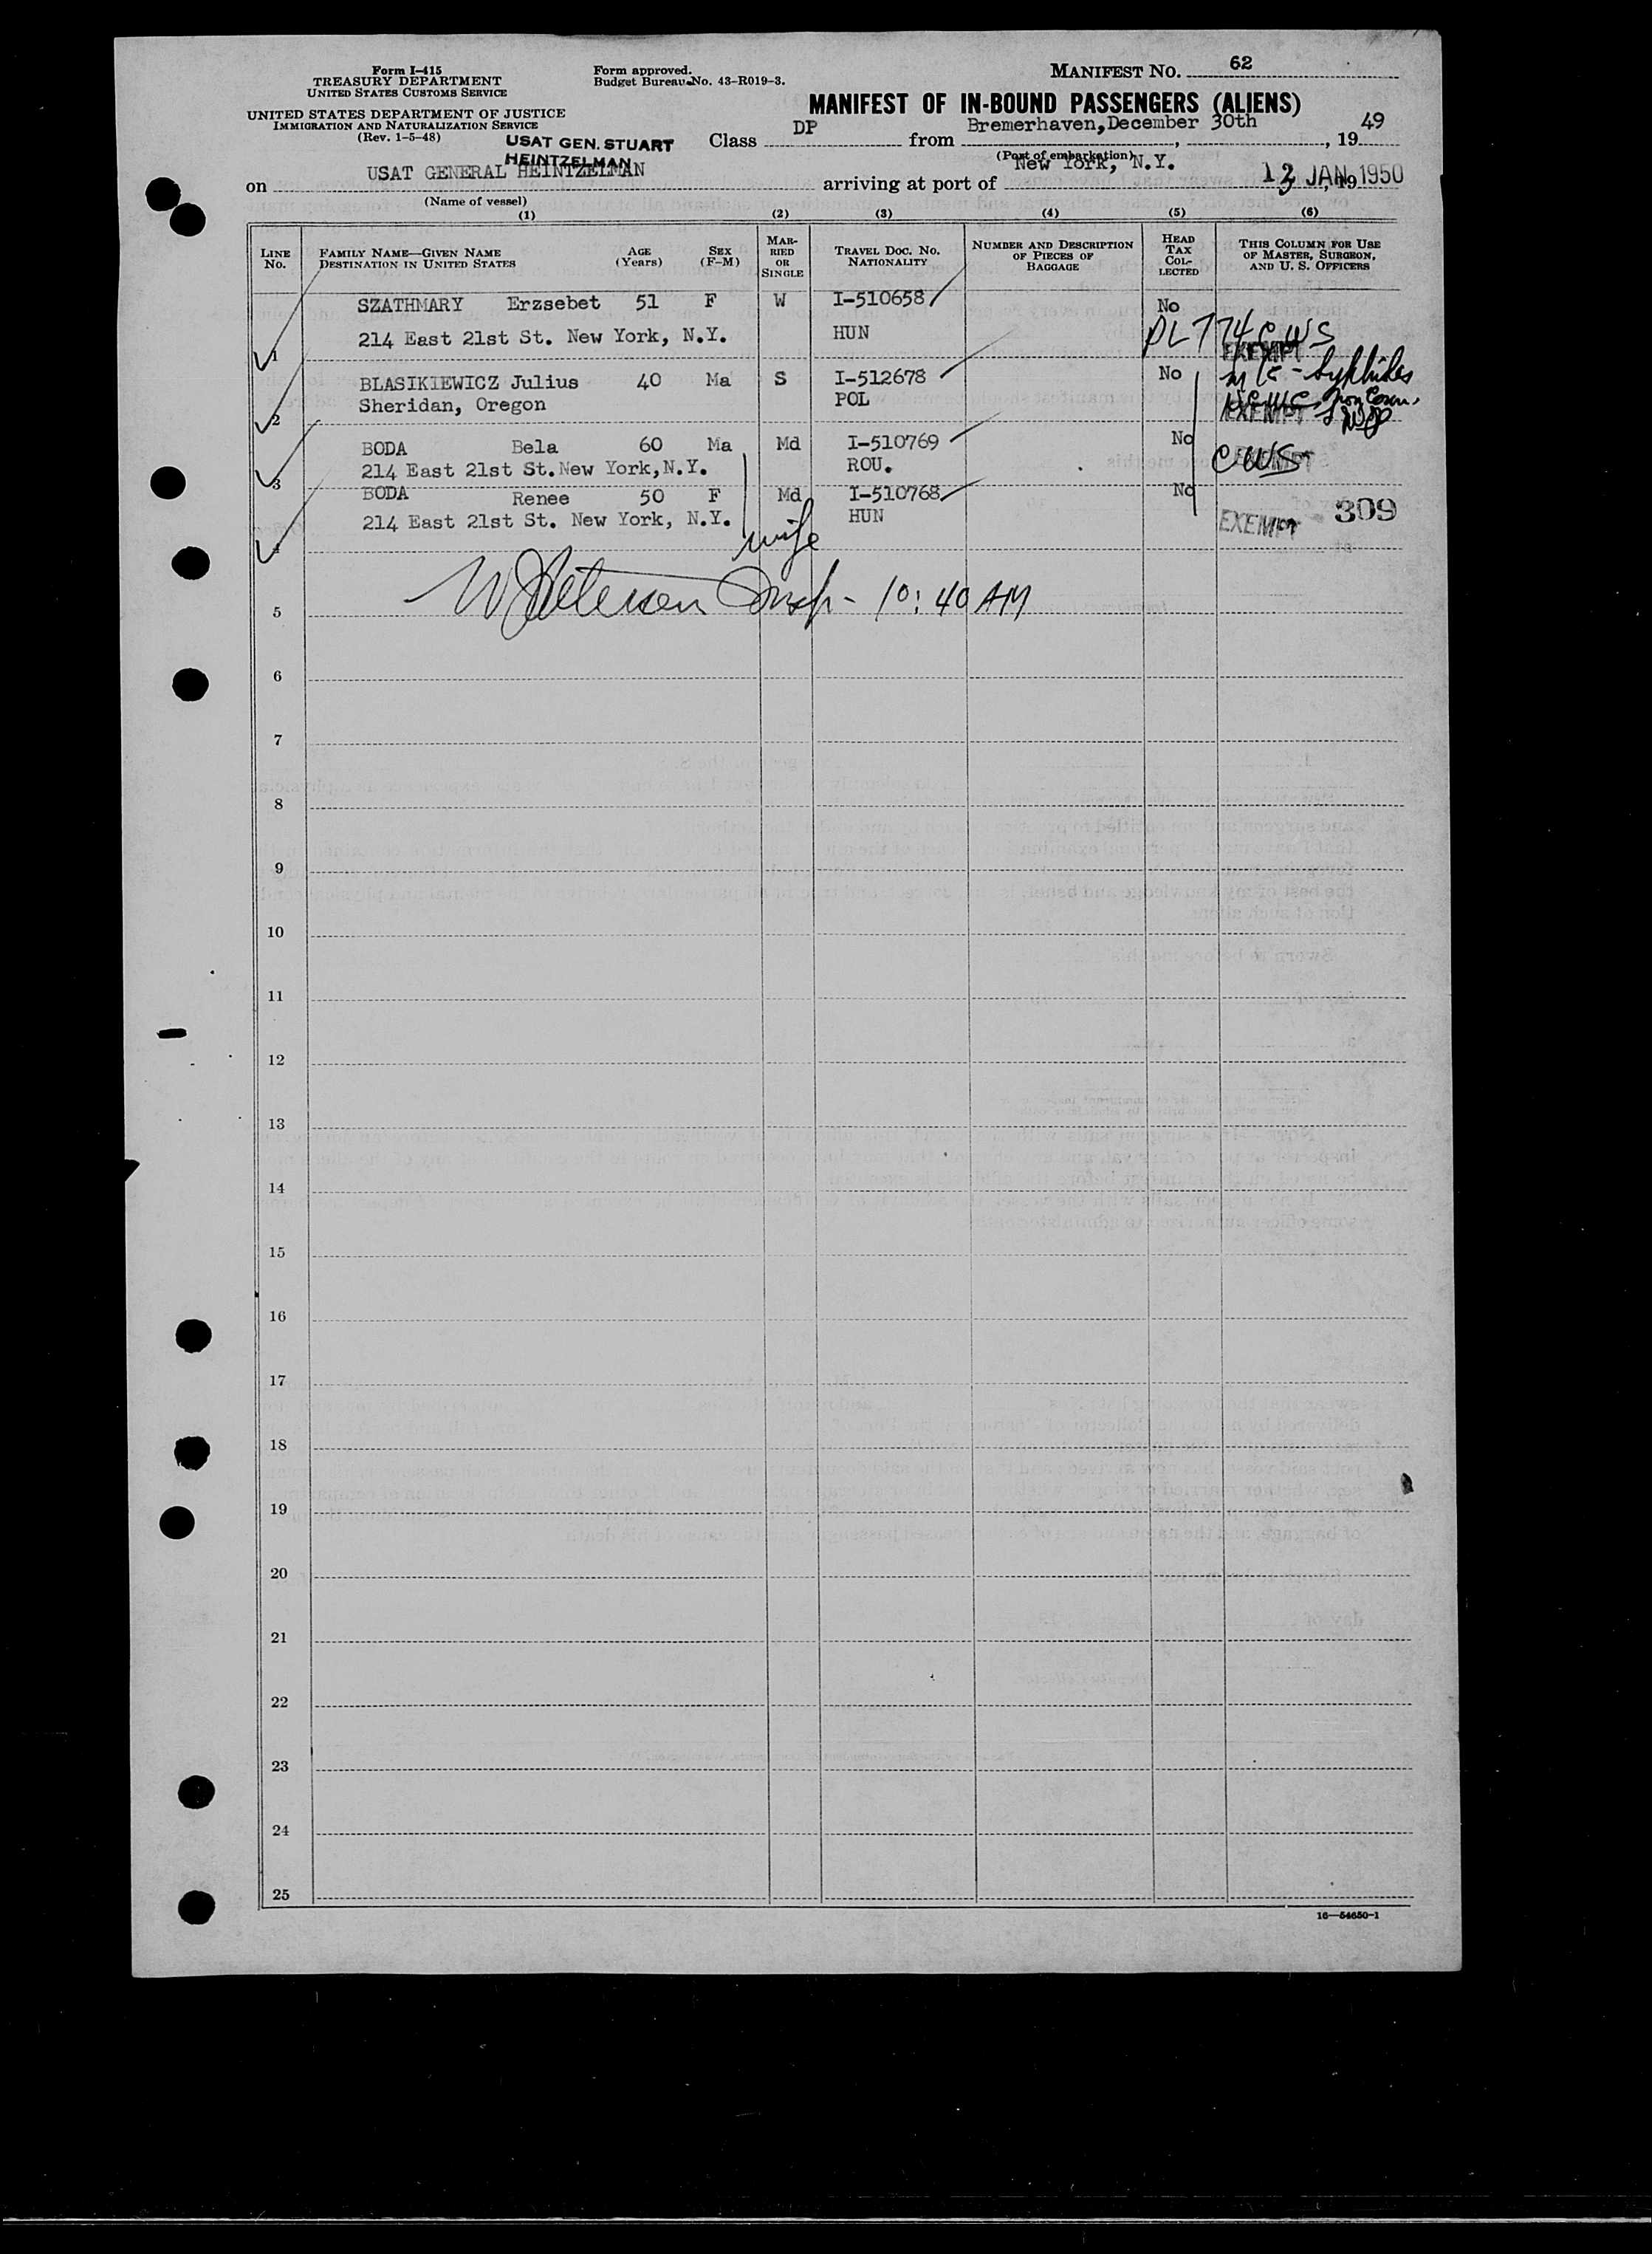 Form I-415
TREASURY DEPARTMENT
UNITED STATES CUSTOMS SERVICE
UNITED STATES DEPARTMENT OF JUSTICE
IMMIGRATION AND NATURALIZATION SERVICE
(Rev. 1-5-48)
Form approved.
Budget Bureau No. 43-R019-3.
MANIFEST No. 62
MANIFEST OF IN-BOUND PASSENGERS (ALIENS)
Class DP from Bremerhaven, December 30th, 1949
(Port of embarkation)
USAT GEN. STUART
HEINTZELMAN
on USAT GENERAL HEINTZELMAN arriving at port of New York, N.Y. JAN 19 1950
(Name of vessel)
(1) (2) (3) (4) (5) (6)
LINE No. FAMILY NAME—GIVEN NAME DESTINATION IN UNITED STATES AGE (Years) SEX (F-M) MARRIED OR SINGLE TRAVEL DOC. NO. NATIONALITY NUMBER AND DESCRIPTION OF PIECES OF BAGGAGE HEAD TAX COLLECTED THIS COLUMN FOR USE OF MASTER, SURGEON, AND U. S. OFFICERS
SZATHMARY Erzsebet 51 F W I-510658 No
1 214 East 21st St. New York, N.Y. HUN PL 774 CWS
EXEMPT
BLASIKIEWICZ Julius 40 Ma S I-512678 No
2 Sheridan, Oregon POL EXEMPT
BODA Bela 60 Ma Md I-510769 No
3 214 East 21st St. New York, N.Y. ROU. CWS EXEMPT
BODA Renee 50 F Md I-510768 No
4 214 East 21st St. New York, N.Y. HUN EXEMPT 309
wife
W Peterson Insp - 10:40 AM
5
6
7
8
9
10
11
12
13
14
15
16
17
18
19
20
21
22
23
24
25
16—54650-1